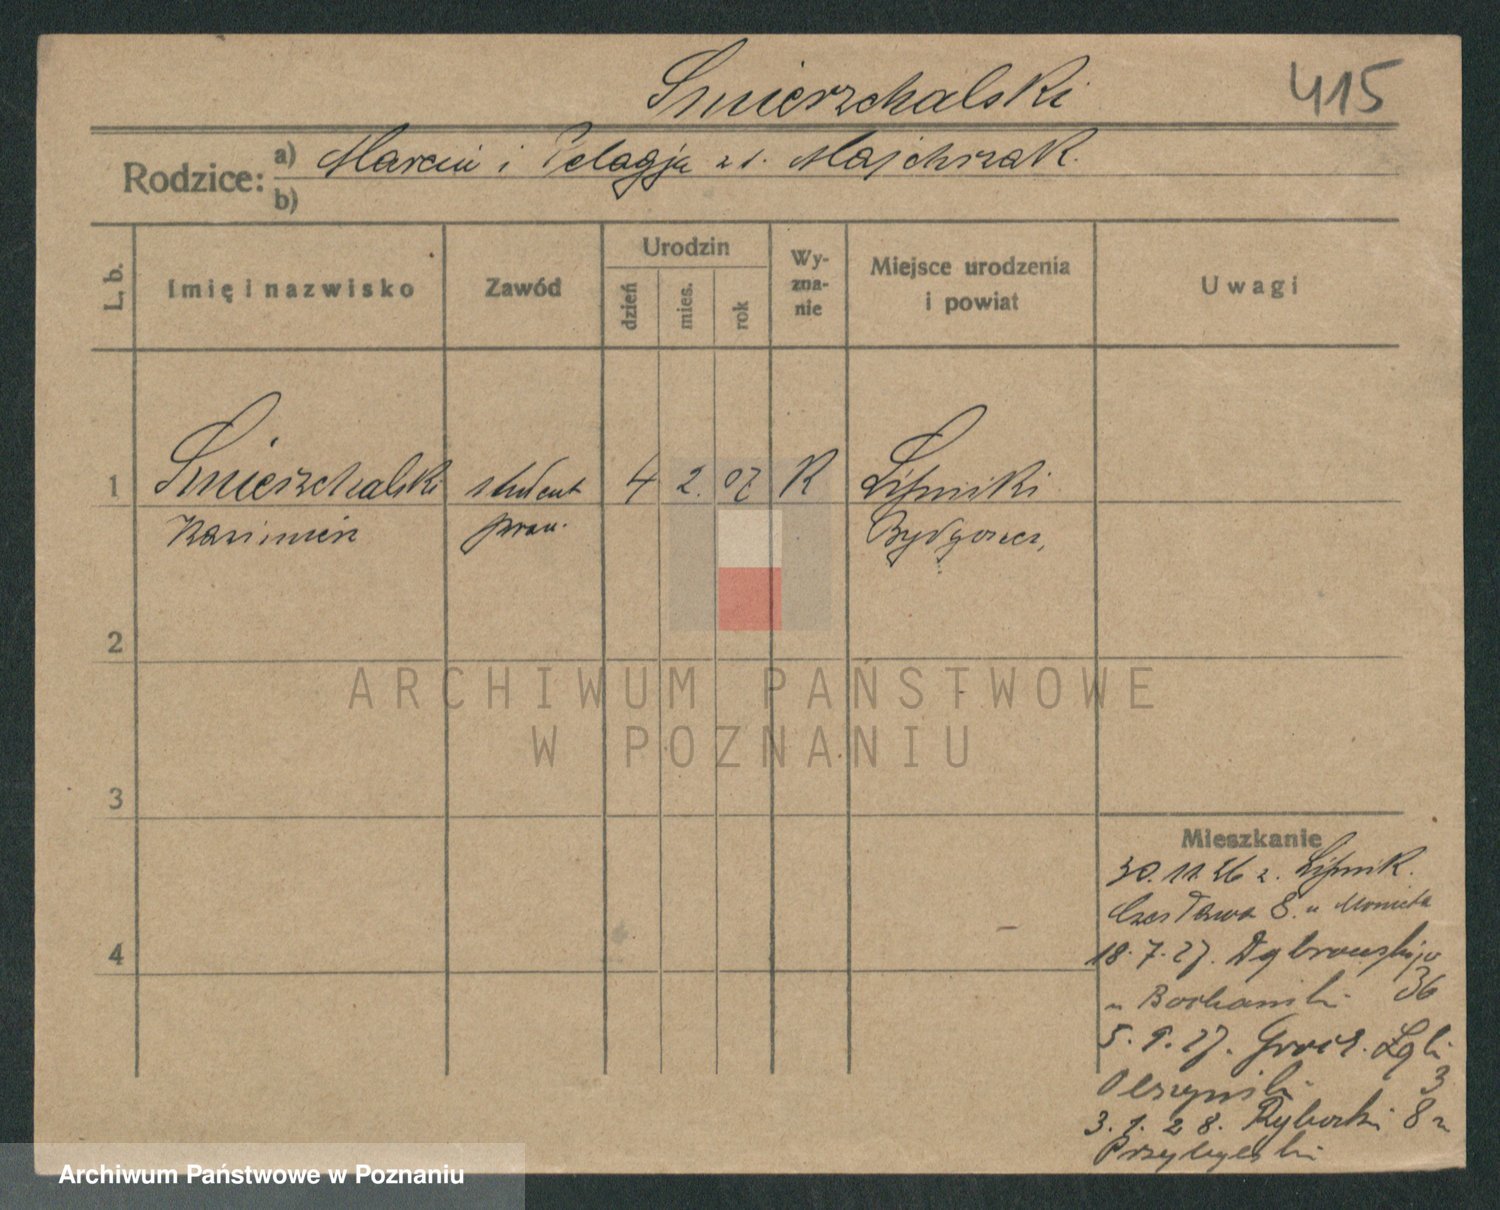 Smierzchalski 415
Rodzice: a) Marcin i Pelagja z d. Majchrzak.
b)
L. b. Imię i nazwisko Zawód Urodzin dzień mies. rok Wy-zna-nie Miejsce urodzenia i powiat Uwagi
1 Smierzchalski student 4 2. 07 R Lipniki
Kazimierz praw. Bydgoszcz,
2
ARCHIWUM PAŃSTWOWE
W POZNANIU
3
Mieszkanie
30.11.26 z. Lipnik.
Czesława 8. u
4
18.7.27. Dąbrowskiego
36
5.9.27. Groch. Łąki
3
3.1.28. Rybaki 8 u
Przybylski
Archiwum Państwowe w Poznaniu